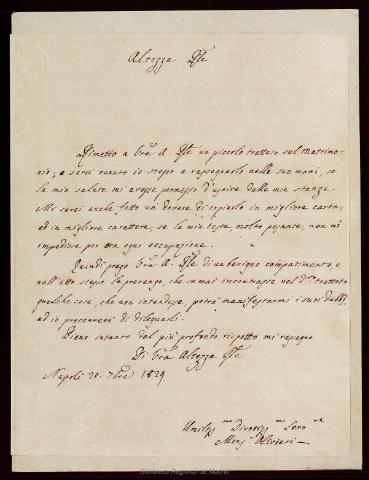 Altezza Rle
Rimetto a Vra A. Rle un piccolo trattato sul Matrimo-
nio, e sarei venuto io stesso a rassegnarlo nelle sue mani, se
la mia salute mi avesse permesso d'uscire dalle mie stanze.
Mi sarei anche fatto un dovere di copiarlo in migliore carta,
ed in migliore carattere, se la mia testa, molto pesante, non mi
impedisse per ora ogni occupazione.
Quindi prego Vra A. Rle di un benigno compatimento, e
nell'atto stesso la prevengo, che se mai incontrasse nel do trattato
qualche cosa, che non intendesse, potrà manifestarmi i suoi dubbj,
ed io proccurerò di dileguarli.
Pieno intanto del più profondo rispetto mi rassegno
Di Vra Altezza Rle
Napoli 20. 7bre 1829
Umiliss.mo Divotiss.mo Serv.
Mons.r Olivieri
Biblioteca Regional de Madrid